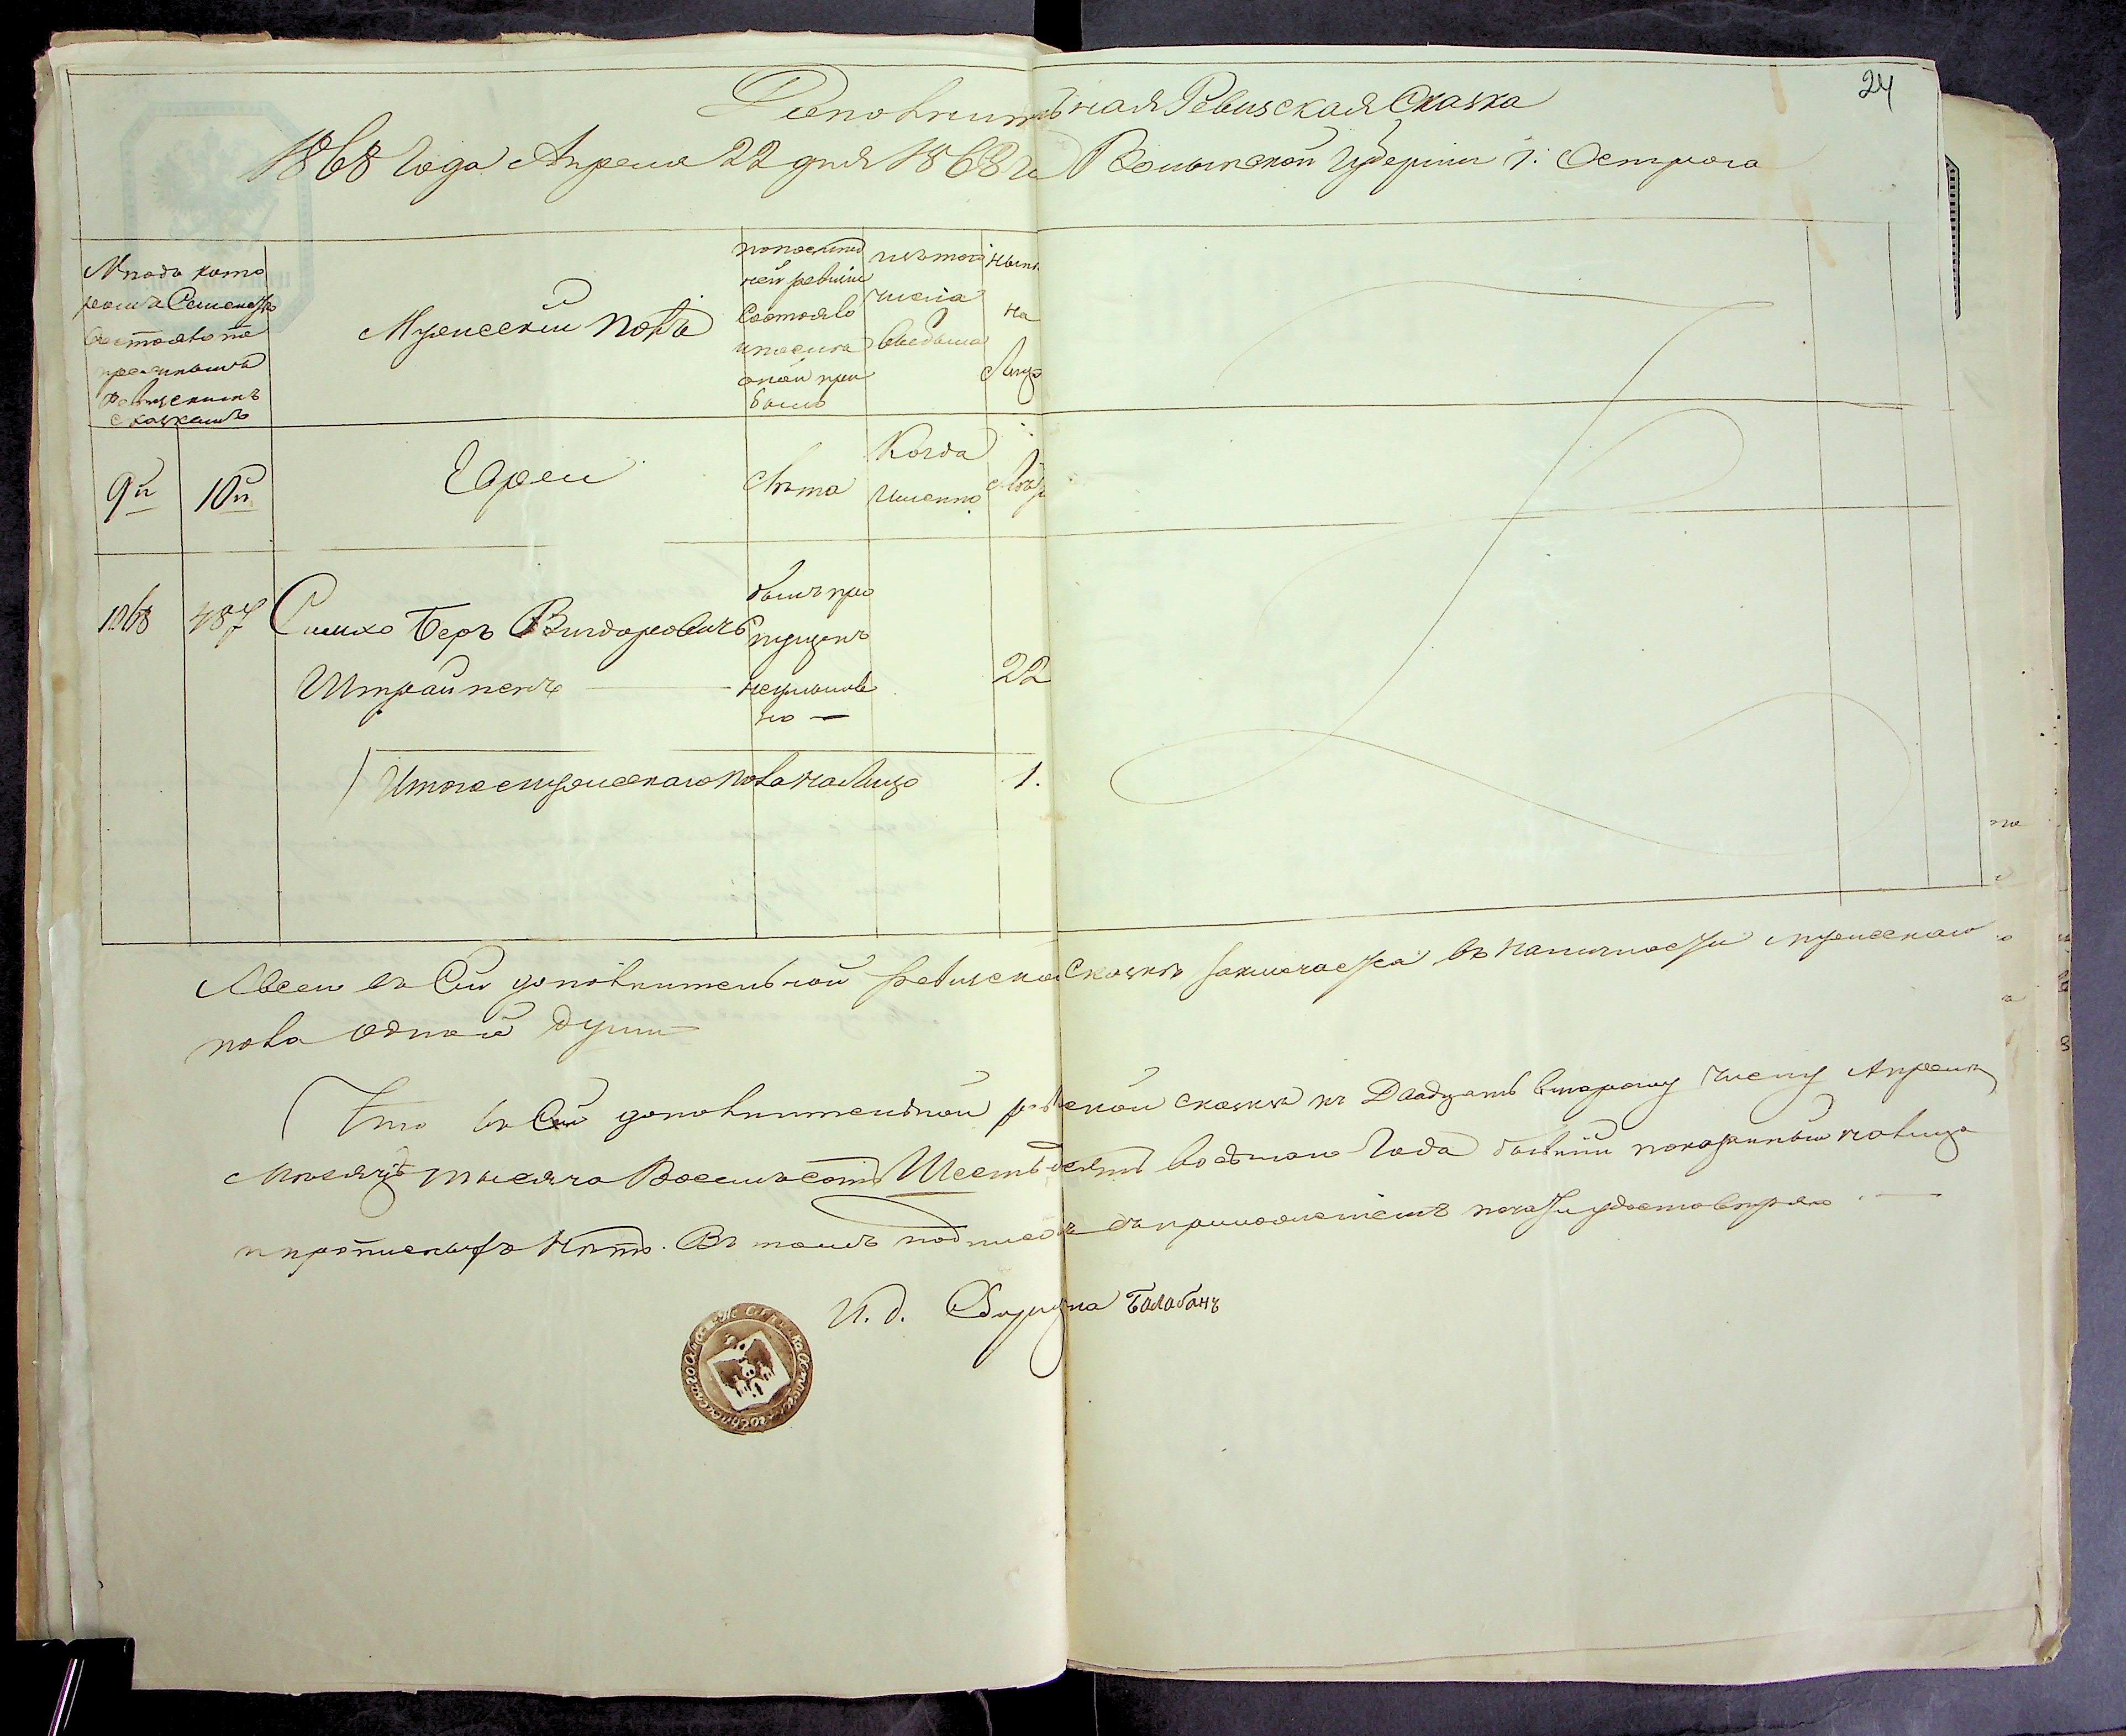 24
Дополнительная Ревизская Сказка
1868 года Апреля 22 дня 1868 го Волынской Губернии г. Острога
№ подъ кото
рымъ Семейство
состояло по
прежнимъ
Ревизскимъ
сказкамъ
Мужескій полъ
по послед
ней ревизіи
Состояло
и после
оной при
было
изъ того
числа
выбыло
ныне
на
Лицо
9й
10й
Евреи
Лета
Когда
именно
Лета
1068
487
Симхо Беръ Вигдоровичъ
Штрайпенъ
былъ про
пущенъ
неумышле
но —
22
Итого мужескаго пола на Лицо
1.
А всего въ Сей дополнительной ревизской Сказке заключается въ наличности мужескаго
пола одной души
Что въ Сей дополнительной ревизской сказке къ Двадцать второму числу Апреля
Месяца тысяча Восемьсотъ Шестьдесятъ восьмаго Года показанный на лицо
и прописныхъ нетъ. Въ томъ подписомъ съ приложеніемъ печати удостоверяю —
И. д. Балабанъ